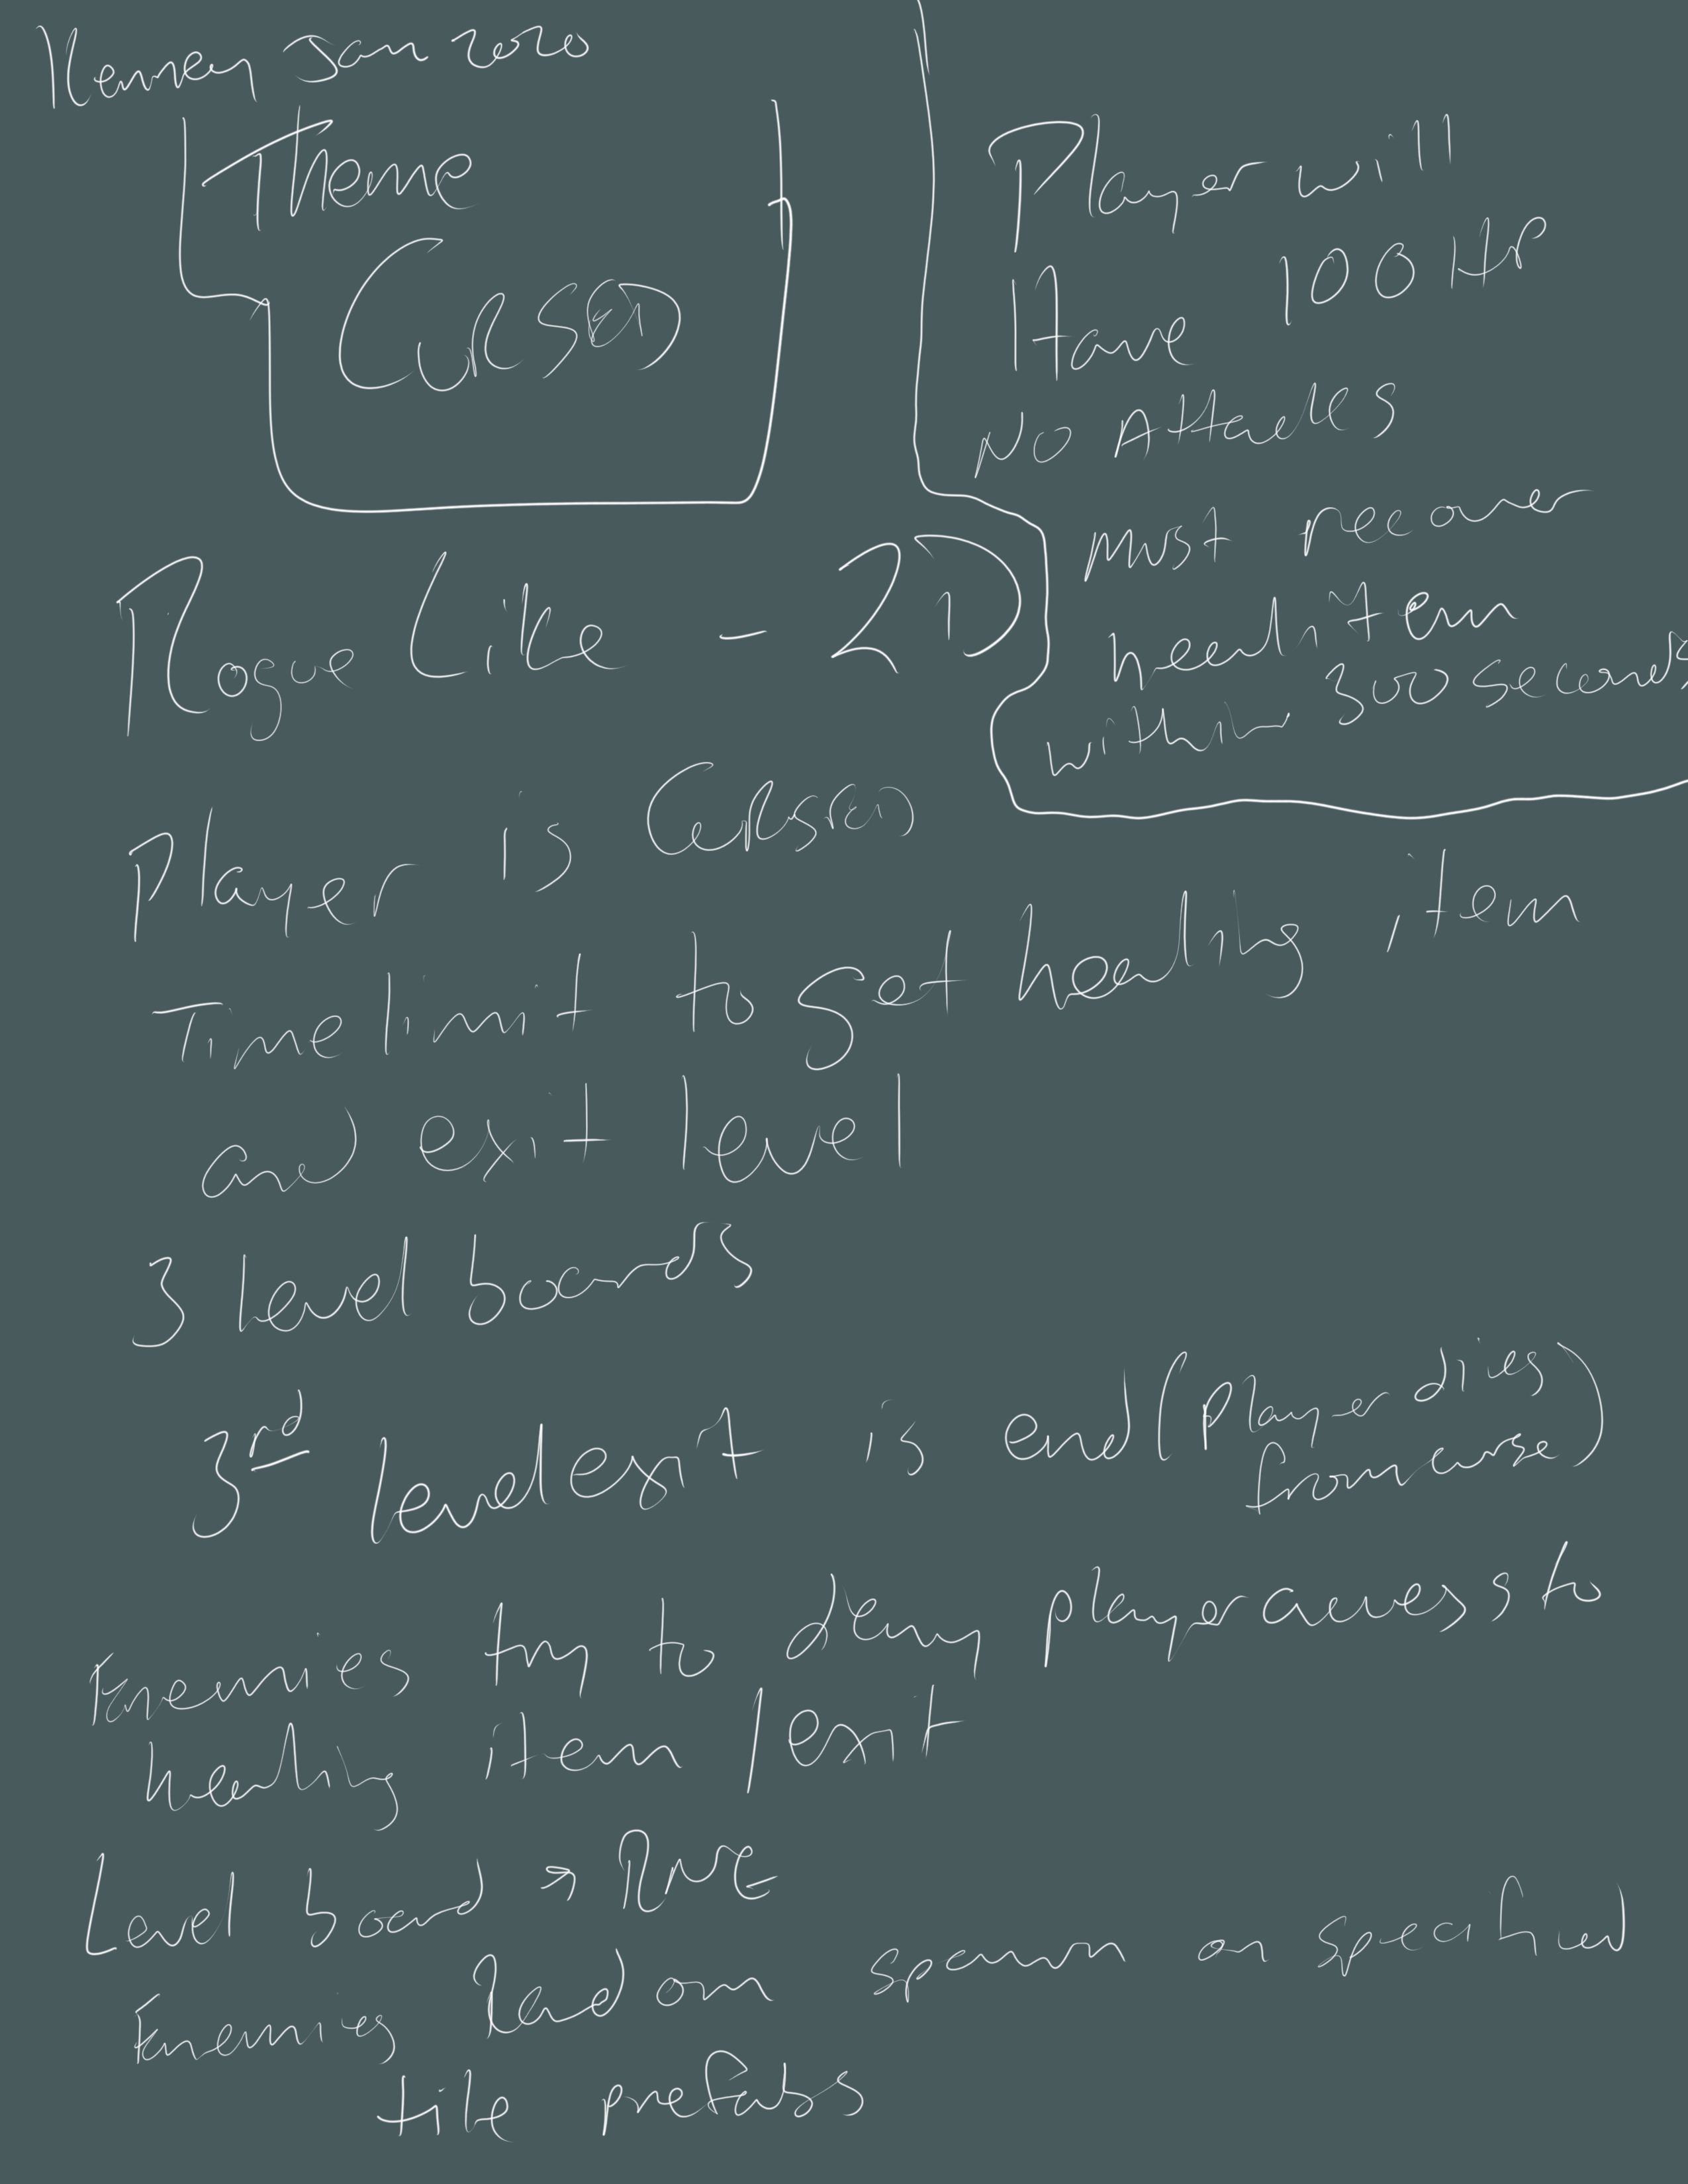 Kenney Jam 2020
Theme
CURSED
Player will
Have 100 HP
NO Attacks
Must recover
heal item
within 300 seconds
Rogue Like - 2D
Player is CURSED
Time limit to get healing item
and exit level
3 level boards
3rd level exit is end (player dies
from curse)
Enemies try to deny player access to
healing item / exit
Level board → RNG
Enemies spawn on specified
tile prefabs